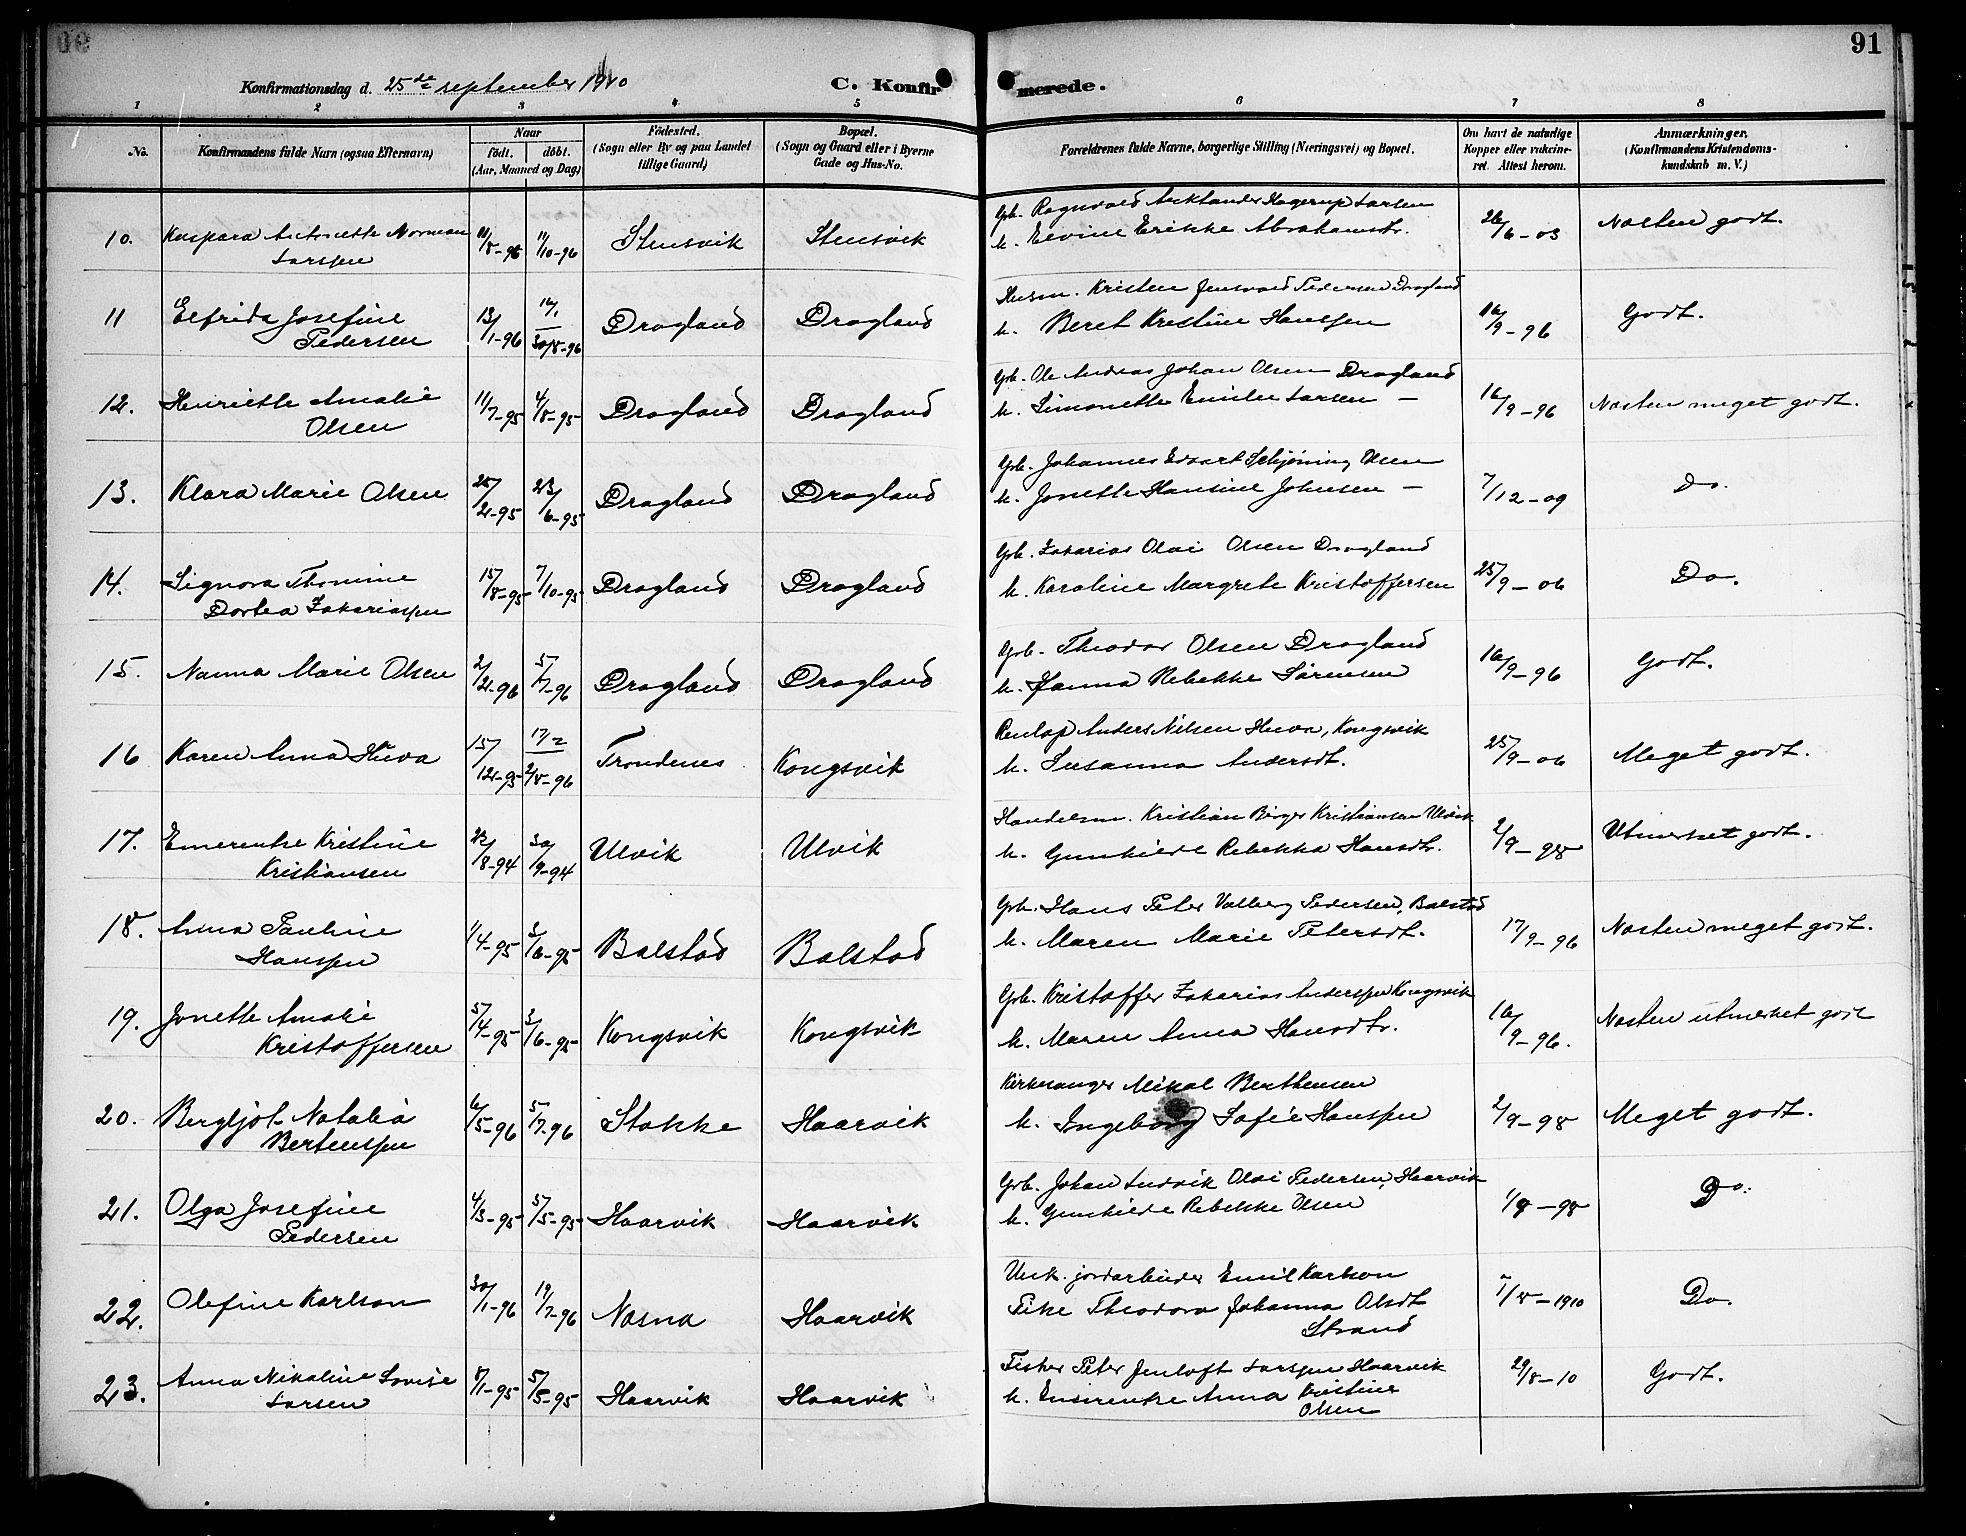 91
Konfirmationsdag d. 25de september 1910 C. Konfirmerede.
1 2 3 4 5 6 7 8
No. Konfirmandens fulde Navn (ogsaa Efternavn) Naar født. døbt. (Aar, Maaned og Dag) Fødested. (Sogn eller By og paa Landet tillige Gaard) Bopæl. (Sogn og Gaard eller i Byerne Gade og Hus-No. Forældrenes fulde Navne, borgerlige Stilling (Næringsvei) og Bopæl. Om havt de naturlige Kopper eller vakcineret. Attest herom. Anmærkninger. (Konfirmandens Kristendomskundskab m. V.)
Gb. Ragnvald Hagerup Larsen
10. Kaspara Antonette Norman 11/8-96 11/10-96 Stensvik Stensvik h. Elvine Erikke Abrahamsdr. 26/6-03 Næsten godt.
Larssen
Husm. Kristen Jensvold Pedersen Dragland
11 Elfrida Josefine 13/1-96 16/1 Dragland Dragland h. Beret Kristine Hanssen 16/9-96 Godt.
Pedersen 30/8-96
Gb. Ole Andreas Johan Olsen Dragland
12. Henriette Amalie 11/7-95 4/8-95 Dragland Dragland h. Simonette Emilie Larsen — 16/9-96 Næsten meget godt.
Olsen
Gb. Johannes Edvart Schjøning Olsen
13. Klara Marie Olsen 25/2-95 23/6-95 Dragland Dragland h. Jonette Hansine Johnsen — 7/12-09 Do.
Gb. Zakarias Olai Olsen Dragland
14. Signora Thomine 15/8-95 7/10-95 Dragland Dragland h. Karoline Margrete Kristoffersen 25/9-06 Do.
Dortea Zakariassen
Gb. Theodor Olsen Dragland
15. Nanna Marie Olsen 2/2-96 5/7-96 Dragland Dragland h. Hanna Rebekke Sørensen 16/9-96 Godt.
Renlap Anders Nilsen Huva, Kongsvik
16 Karen Anna Huva 15/12-95 17/2 Trondenes Kongsvik h. Susanna Andersdt. 25/9-06 Meget godt.
2/8-96
Handelsm. Kristian Birger Kristiansen Ulvik
17. Emerentse Kristine 22/8-94 30/9-94 Ulvik Ulvik h. Gunhilde Rebekka Hansdtr. 2/9-98 Utmerket godt.
Kristiansen
Gb. Hans Peter Valberg Pedersen, Balstad
18. Anna Pauline 1/4-95 3/6-95 Balstad Balstad h. Maren Marie Petersdt. 17/9-96 Næsten meget godt.
Hanssen
Gb. Kristoffer Zakarias Anderssen Kongsvik
19. Jonette Amalie 5/4-95 3/6-95 Kongsvik Kongsvik h. Maren Anna Hansdtr. 16/9-96. Næsten utmerket godt
Kristoffersen
Kirkesanger Mikal Berthensen
20. Bergljot Natalia 6/5-96 5/7-96 Stokke Haarvik h. Ingeborg Sofie Hanssen 2/9-98 Meget godt.
Bertenssen
Gb. Johan Ludvik Olai Pedersen, Haarvik
21. Olga Josefine 4/3-95 5/5-95 Haarvik Haarvik h. Gunhilde Rebekke Olsen 1/9-98 Do.
Pedersen
Unk. jordarbeider Emil Karlson
22. Olefine Karlson 30/1-96 19/7-96 Nasna Haarvik Pike Theodora Johanna Olsdt 7/8-1910 Do.
Strand
Fisker Peter Jenloft Larssen Haarvik
23. Anna Nikoline Lovise 8/1-95 5/5-95 Haarvik Haarvik h. Anna Kristine 29/8-10 Godt.
Larsen Olsen